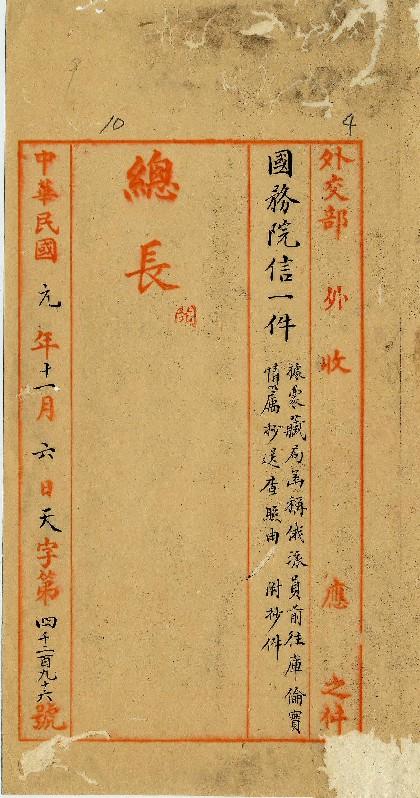 4
10
外交部 外 收 應 之件
國務院信一件
據蒙藏局函稱俄派員前往庫倫實
情 抄送查照由 附抄件
總長
閱
中華民國元年十一月六日天字第四千二百九十六號